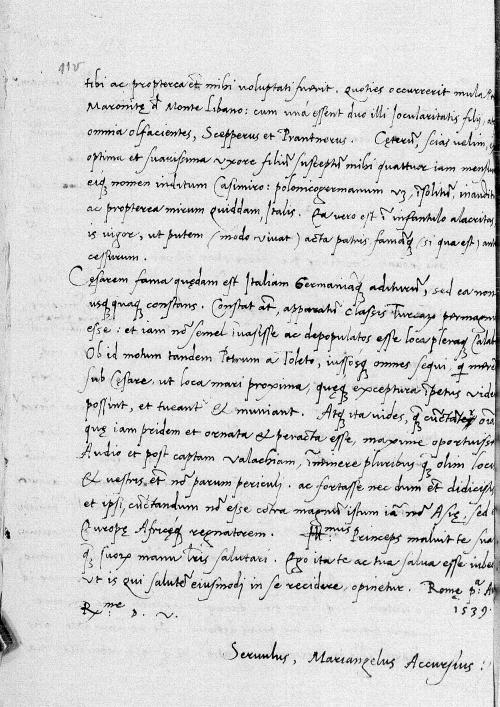 tibi ac propterea et mihi voluptati fuerit. quoties occurrerit mula
Maronitę d Monte Libano: cum unà essent duo illi Jocularitatis filij,
omnia olfacientes, Scepperus et Prantnerus. Ceterũ, scias velim,
optima et suavissima uxore filiũ susceptũ mihi quattuor iam mensiũ
eiq nomen inditum Casimiro: polonicogermanum vz, isolitũ, inaudit
ac propterea mirum quiddam Italis. Ea vero est ĩ infantulo alacritas,
is vigor, ut putem (modo vivat) acta patris famaq (si qua est) ant
cessurum.
Cęsarem fama quędam est Italiam Germaniaq aditurũ, sed ea non
usq quaq constans. Constat at, apparatũ classis Turcarum permagnũ
esse: et iam nõ semel ivasisse ac depopulatos esse loca pleraq Calab
Ob id motum tandem Petrum a Toleto, iussosq omnes sequi, q
sub Cęsare, ut loca mari proxima, quęq exceptura ĩpetus vide
possint, et tueant & muniant. Atq ita vides, q cũctater
quę iam pridem et ornata & peracta esse, maxime oportuiss
Audio et post captam Valachiam, ĩminere pluribus q olim loc
& vestris, et nõ parum periculj. ac fortasse nec dum et didicis
et ipsi, cũctandum nõ esse cõtra magnũ istum iã nõ Asię, sed
Europę Africęq regnatorem. mus Princeps maluit te sua
q suorum manu lris salutari. Ego ita te ac tua salva esse iube
ut is qui salutẽ eiusmodi in se recidere opinetur. Romę
R.me D. V. 1539.
Servulus, Mariangelus Accursius: